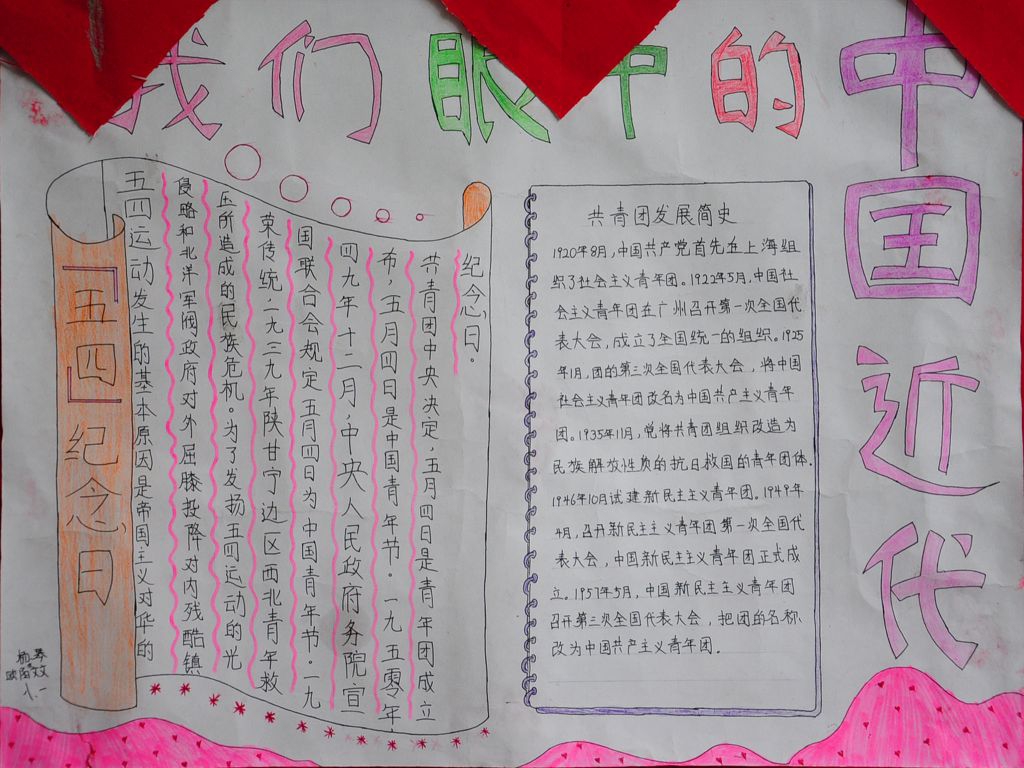 我们眼中的
中国近代
『五四』纪念日
五四运动发生的基本原因是帝国主义对华的
侵略和北洋军阀政府对外屈膝投降对内残酷镇
压所造成的民族危机。为了发扬五四运动的光
荣传统,一九三九年陕甘宁边区西北青年救
国联合会规定五月四日为中国青年节。一九
四九年十二月,中央人民政府务院宣
布,五月四日是中国青年节。一九五零年
共青团中央决定,五月四日是青年团成立
纪念日。
共青团发展简史
1920年8月,中国共产党首先在上海组
织了社会主义青年团。1922年5月,中国社
会主义青年团在广州召开第一次全国代
表大会,成立了全国统一的组织。1925
年1月,团的第三次全国代表大会,将中国
社会主义青年团改名为中国共产主义青年
团。1935年11月,党将共青团组织改造为
民族解放性质的抗日救国的青年团体.
1946年10月试建新民主主义青年团。1949年
4月,召开新民主主义青年团第一次全国代
表大会,中国新民主主义青年团正式成
立。1957年5月,中国新民主主义青年团
召开第三次全国代表大会,把团的名称
改为中国共产主义青年团.
八.一